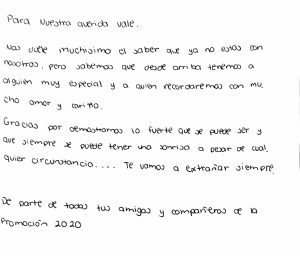 Para Nuestra querida vale.
Nos duele muchisimo el saber que ya no estas con
nosotros, pero sabemos que desde arriba tenemos a
alguien muy especial y a quien recordaremos con mu
cho amor y cariño.
Gracias por demostrarnos lo fuerte que se puede ser y
que siempre se puede tener una sonrisa a pesar de cual.
quier circunstancia.... Te vamos a extrañar siempre.
De parte de todas tus amigas y compañeras de la
Promoción 2020